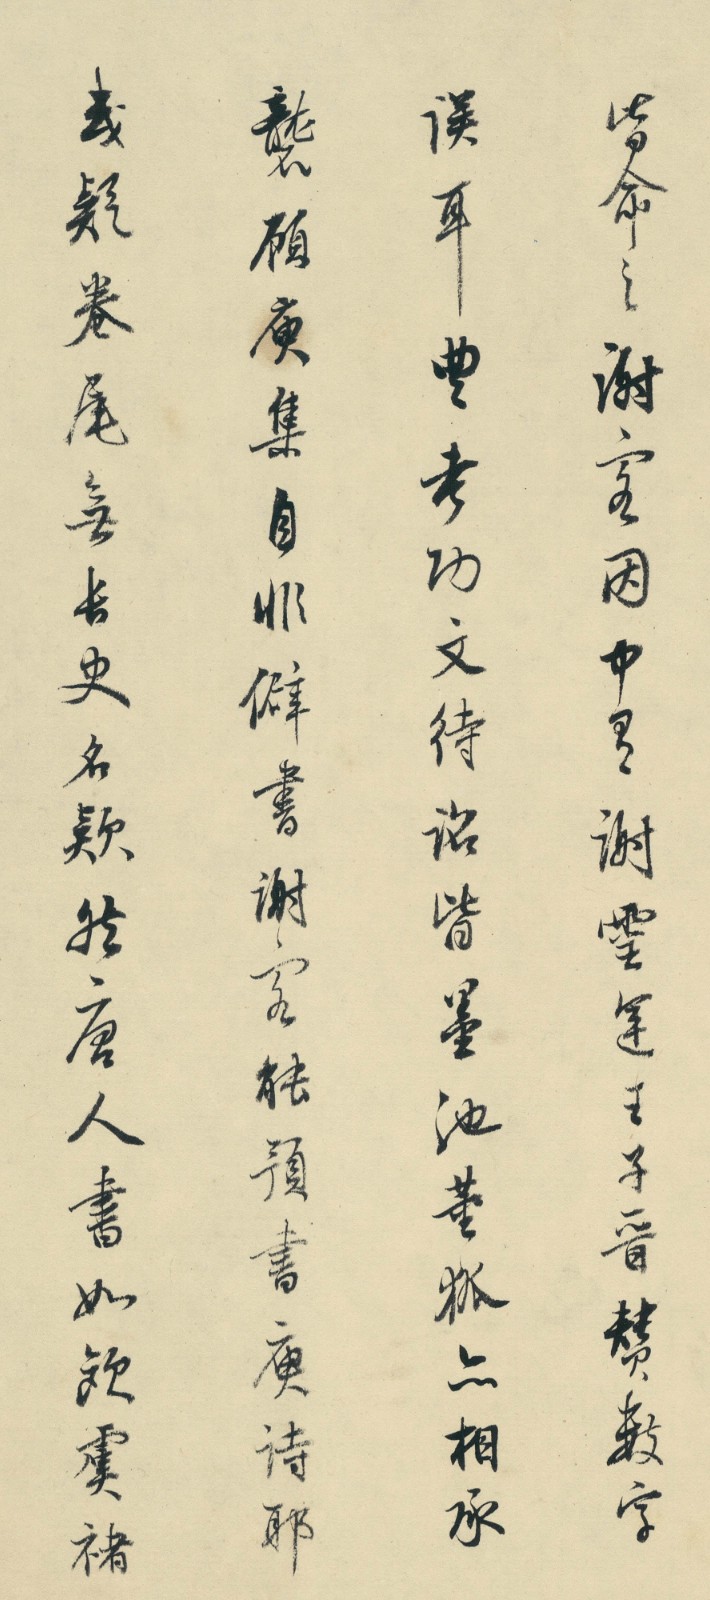 皆命之謝客因中有謝靈運王子晉贊數字
誤耳豐考功文待詔皆墨池董狐亦相承
襲顧庾集自非僻書謝客能預書庾詩耶
或疑卷尾無長史名款然唐人書如歐虞褚